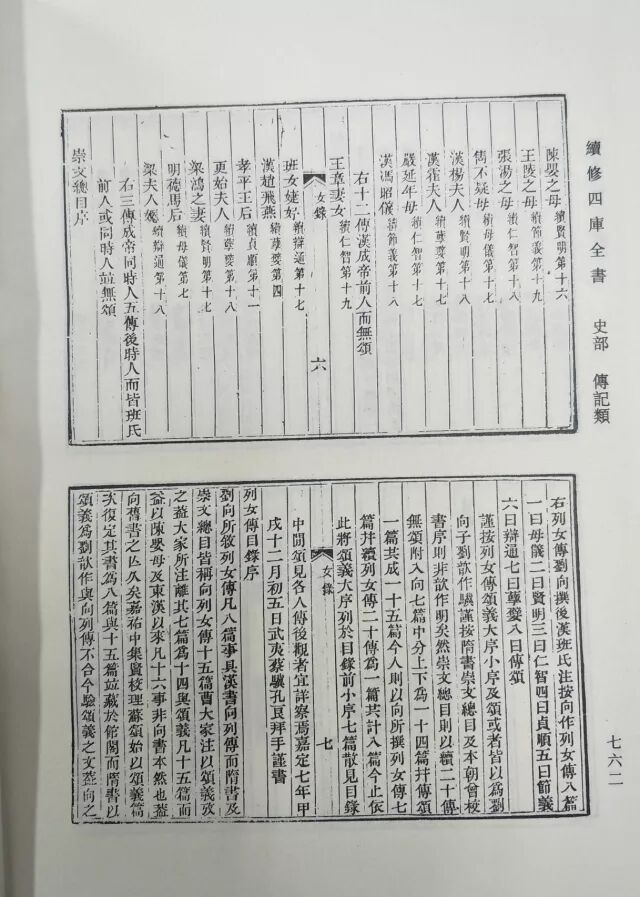 續修四庫全書　史部　傳記類
七六二
陳嬰之母 續賢明第十六
王陵之母 續節義第十九
張湯之母 續仁智第十八
雋不疑母 續母儀第十六
漢楊夫人 續賢明第十八
漢霍夫人 續孽嬖第十七
嚴延年母 續仁智第十七
漢馮昭儀 續節義第十八
右十二傳漢成帝前人而無頌
王章妻女 續仁智第十九
女錄　六
班女婕妤 續辯通第十七
漢趙飛燕 續孽嬖第四
孝平王后 續貞順第十一
更始夫人 續孽嬖第十八
梁鴻之妻 續賢明第十七
明德馬后 續母儀第七
梁夫人嫕 續辯通第十八
右三傳成帝同時人五傳後時人而皆班氏
前人或同時人竝無頌
崇文總目序
右列女傳劉向撰後漢班氏注按向作列女傳八篇
一曰母儀二曰賢明三曰仁智四曰貞順五曰節義
六曰辯通七曰孽嬖八曰傳頌
謹按列女傳頌義大序小序及頌或者皆以爲劉
向子劉歆作驥謹按隋書崇文總目及本朝曾校
書序則非歆作明矣然崇文總目則以續二十傳
無頌附入向七篇中分上下爲一十四篇并傳頌
一篇共成一十五篇今人則以向所撰列女傳七
篇并續列女傳二十傳爲一篇共計八篇今止依
此將頌義大序列於目錄前小序七篇散見目錄
女錄　七
中間頌見各人傳後觀者宜詳察焉嘉定七年甲
戌十二月初五日武夷蔡驥孔良拜手謹書
列女傳目錄序
劉向所敘列女傳凡八篇事具漢書向列傳而隋書及
崇文總目皆稱向列女傳十五篇曹大家注以頌義攷
之蓋大家所注離其七篇爲十四與頌義凡十五篇而
益以陳嬰母及東漢以來凡十六事非向書本然也蓋
向舊書之亡久矣嘉祐中集賢校理蘇頌始以頌義篇
次復定其書爲八篇與十五篇竝藏於館閣而隋書以
頌義爲劉歆作與向列傳不合今驗頌義之文蓋向之